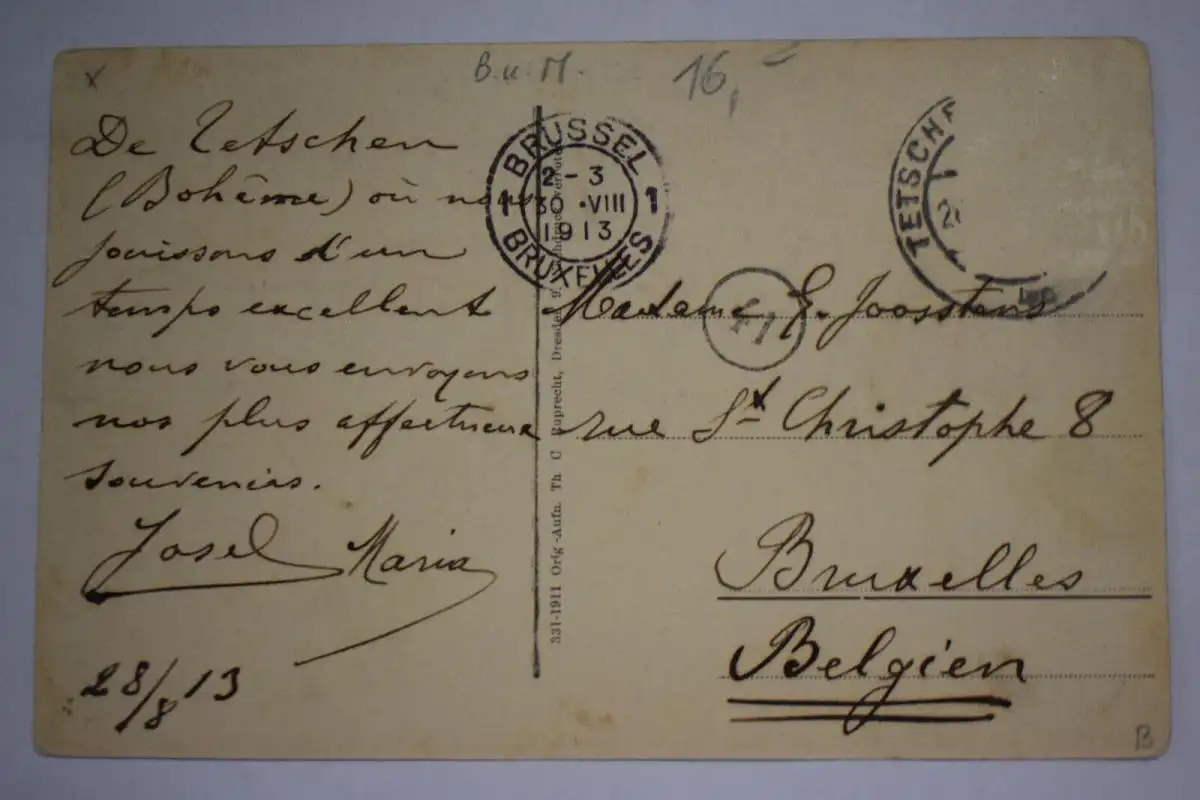 B. u. M.
16,-
De Tetschen
(Bohême) où nous
jouissons d'un
temps excellent
nous vous envoyons
nos plus affectueux
souvenirs.
Josef Maria
28/8 13
BRUSSEL
2-3
1 30 VIII 1
1913
BRUXELLES
TETSCHE
41
Madame E. Joosstens
rue St Christophe 8
Bruxelles
Belgien
331-1911 Orig.-Aufn. Th. C Ruprecht, Dresden 9.
B